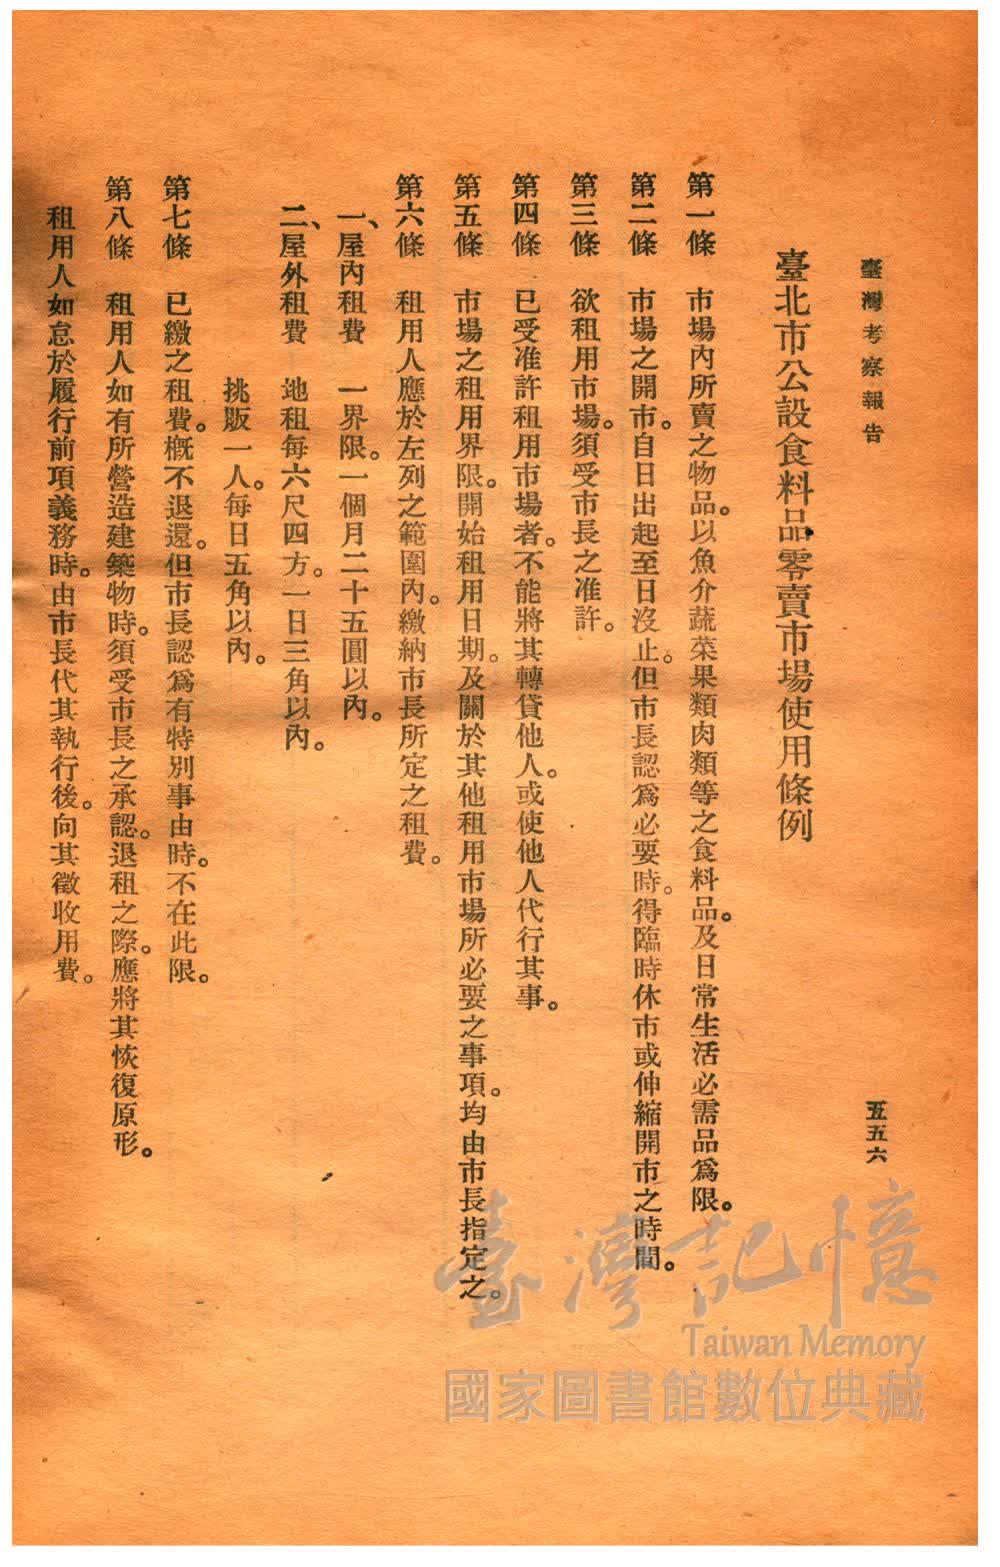 臺灣考察報告
五五六
臺北市公設食料品零賣市場使用條例
第一條　市場內所賣之物品。以魚介蔬菜果類肉類等之食料品。及日常生活必需品爲限。
第二條　市場之開市。自日出起至日沒止。但市長認爲必要時。得臨時休市或伸縮開市之時間。
第三條　欲租用市場。須受市長之准許。
第四條　已受准許租用市場者。不能將其轉貸他人。或使他人代行其事。
第五條　市場之租用界限。開始租用日期。及關於其他租用市場所必要之事項。均由市長指定之。
第六條　租用人應於左列之範圍內。繳納市長所定之租費。
一、屋內租費　一界限。一個月二十五圓以內。
二、屋外租費　地租每六尺四方。一日三角以內。
挑販一人。每日五角以內。
第七條　已繳之租費。槪不退還。但市長認爲有特別事由時。不在此限。
第八條　租用人如有所營造建築物時。須受市長之承認。退租之際。應將其恢復原形。
租用人如怠於履行前項義務時。由市長代其執行後。向其徵收用費。
臺灣記憶
Taiwan Memory
國家圖書館數位典藏